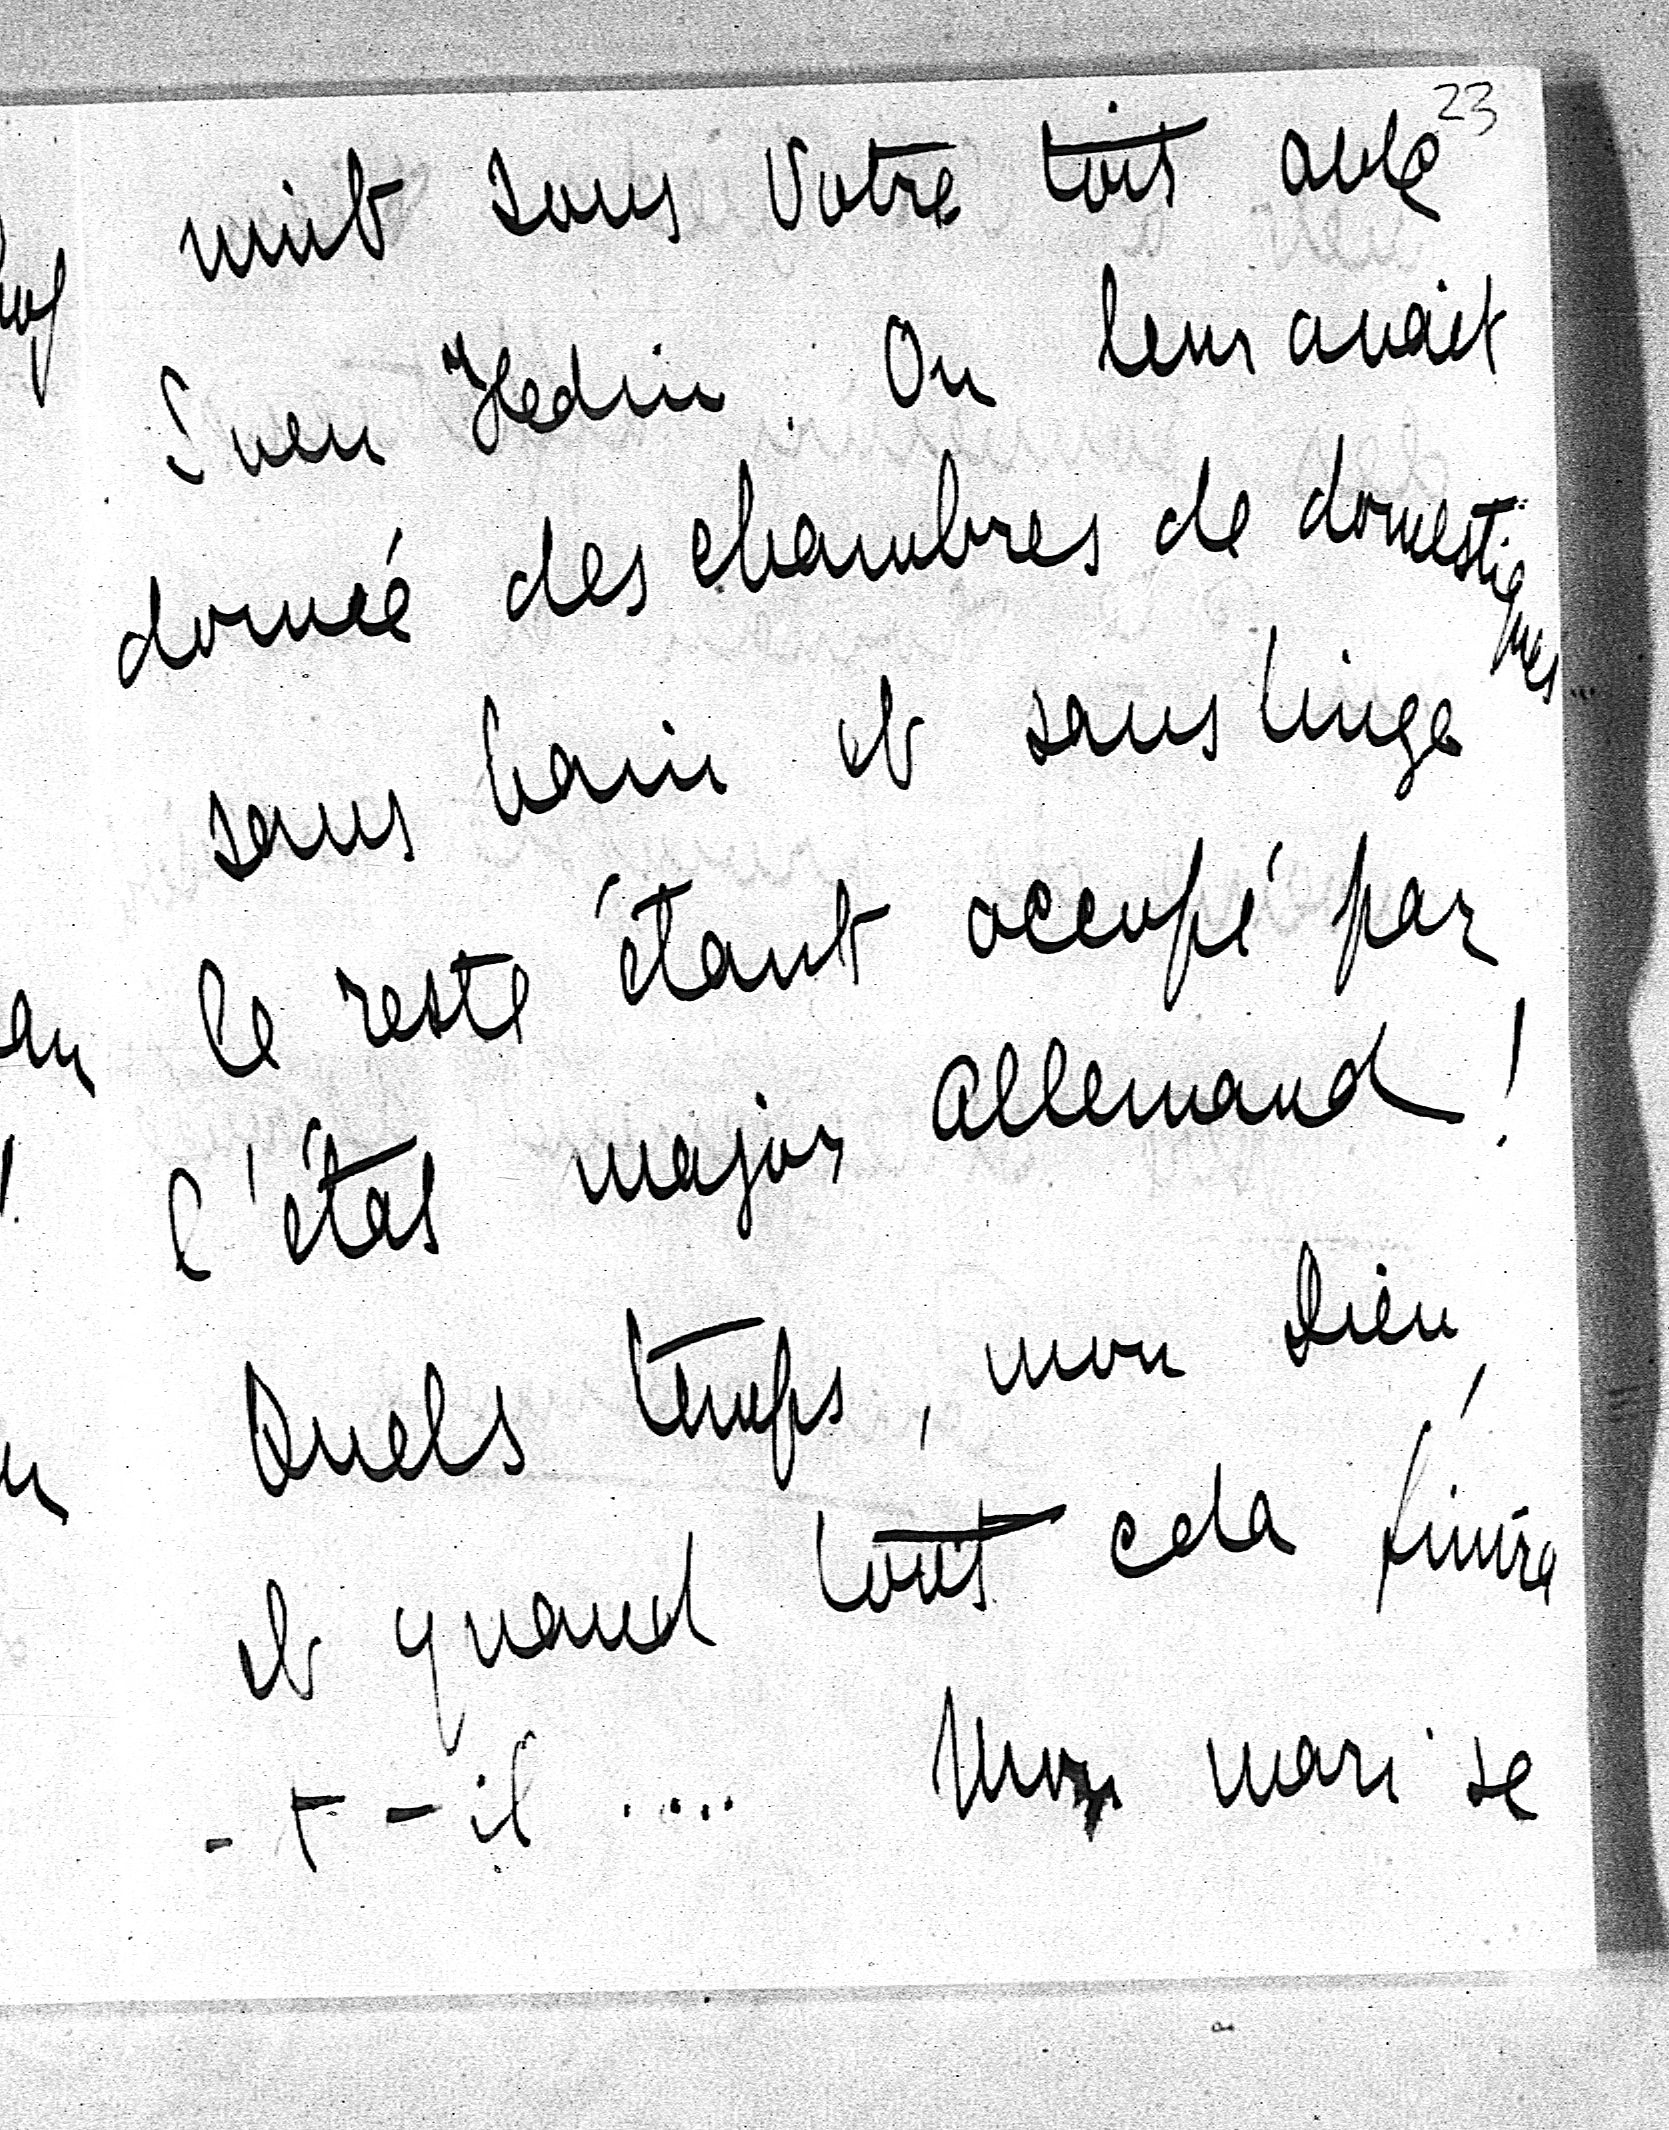 23
nuit sous Votre toit avec
Sven Hedin. On leur avait
donné des chambres de domestiques...
sans bain et sans linge
le reste étant occupé par
l'état major Allemand!
Quels temps, mon Dieu,
et quand tout cela finira
-t-il .... Mon mari se